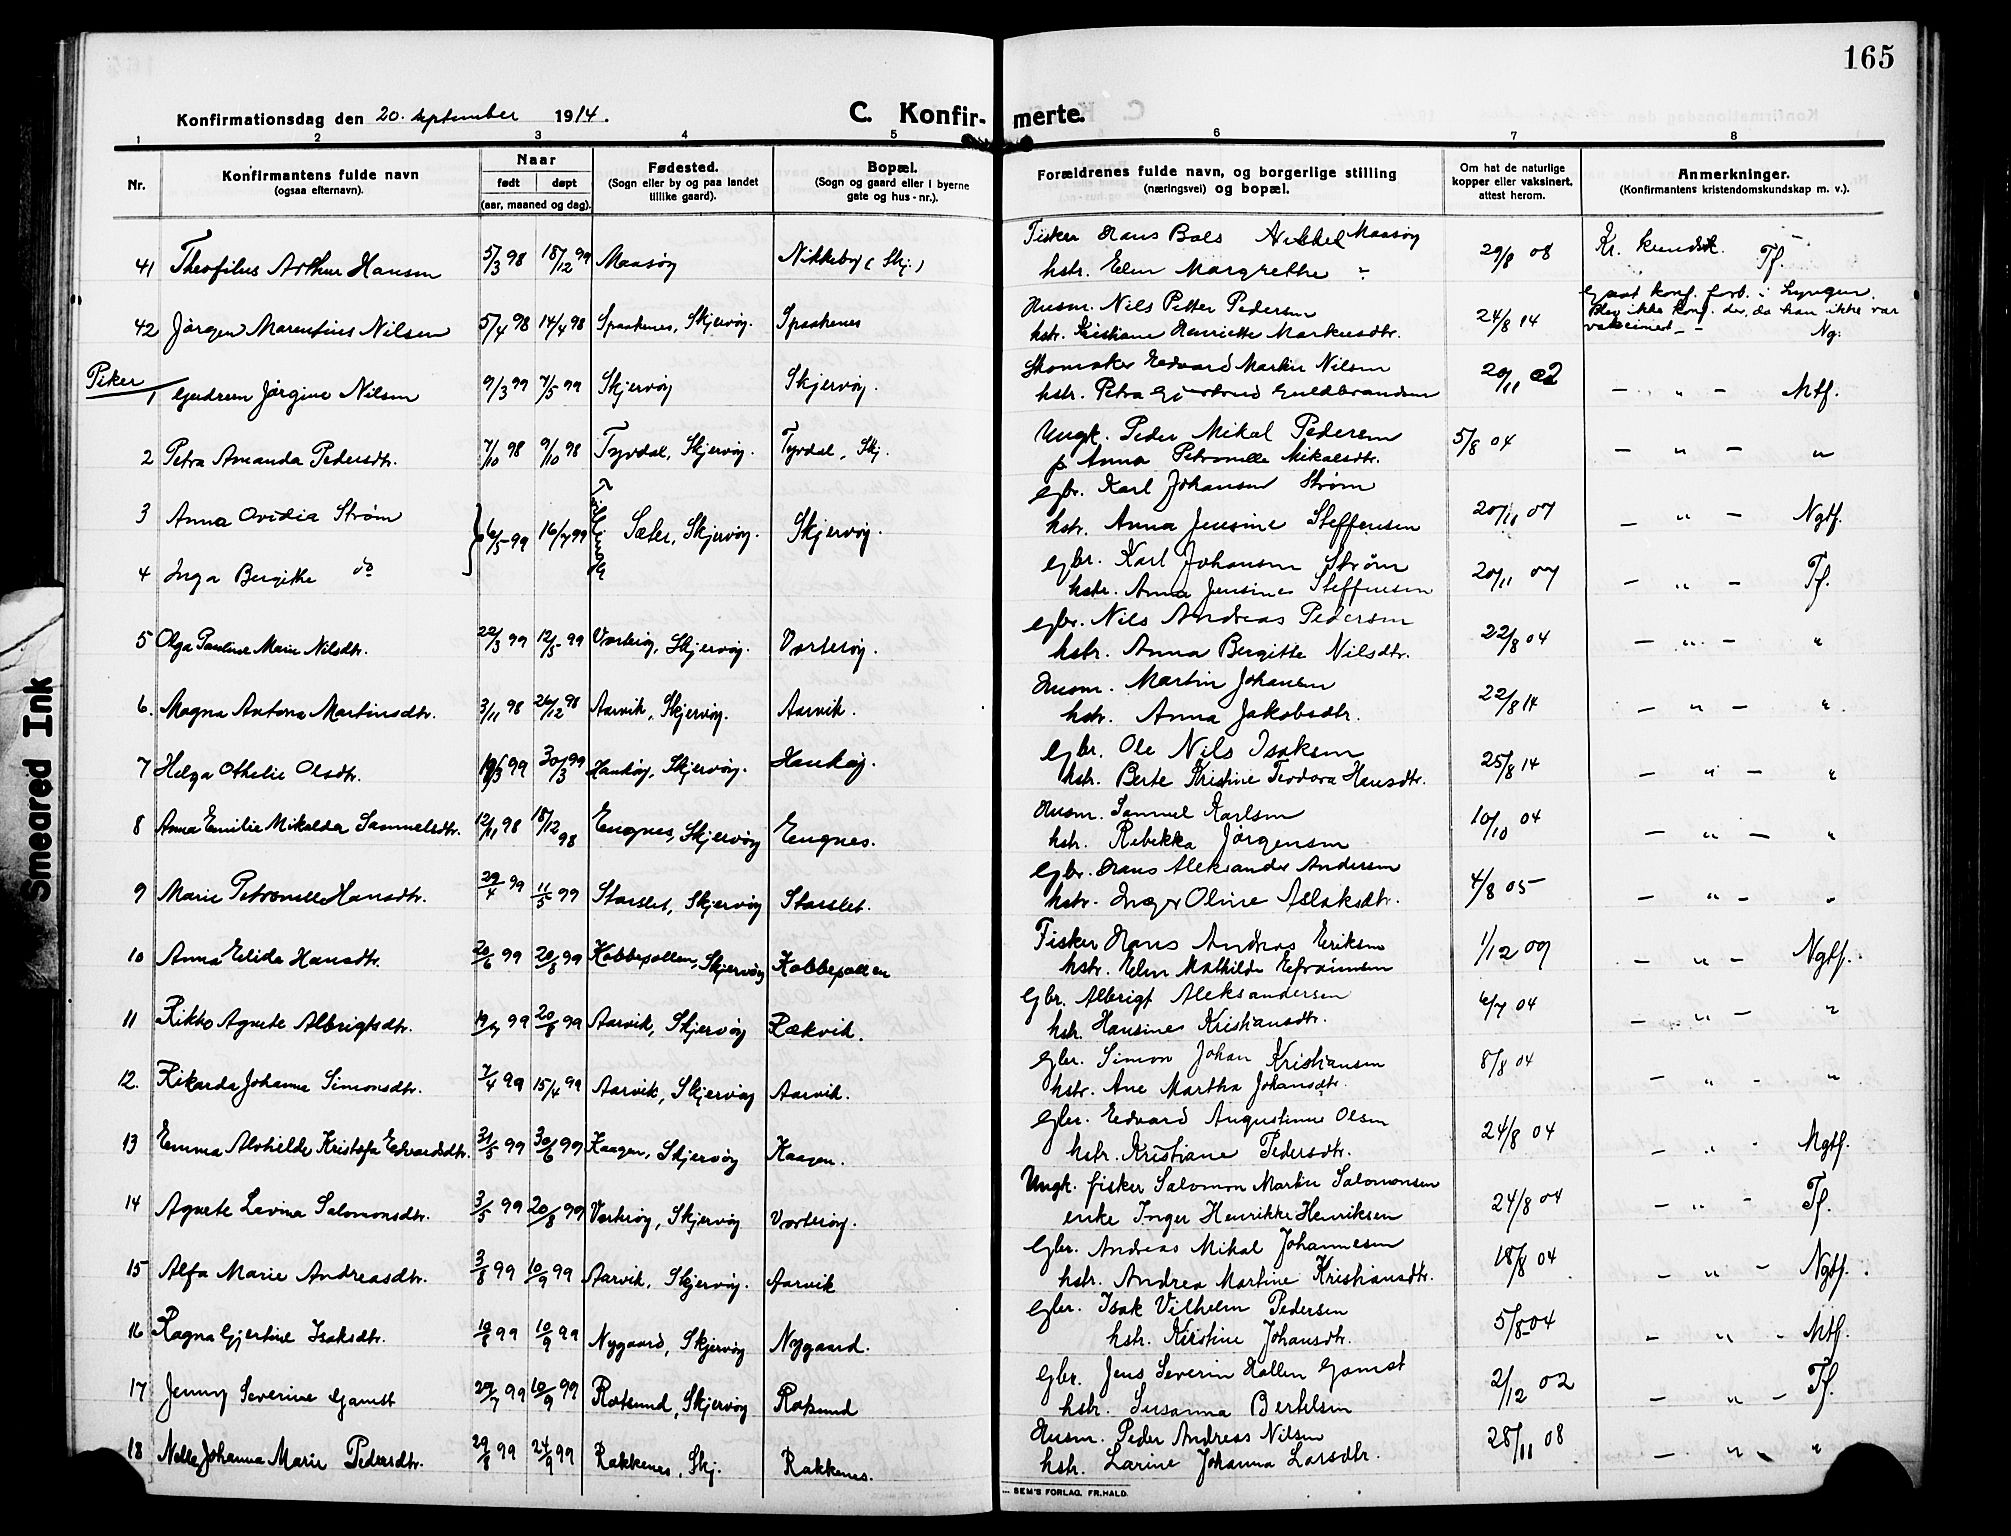 165
Konfirmationsdag den 20. september 1914.
C. Konfir- merte.
1 2 3 4 5 6 7 8
Nr.
Konfirmantens fulde navn
(ogsaa efternavn).
Naar
født døpt
(aar, maaned og dag).
Fødested.
(Sogn eller by og paa landet
tillike gaard).
Bopæl.
(Sogn og gaard eller i byerne
gate og hus-nr.).
Forældrenes fulde navn, og borgerlige stilling
(næringsvei) og bopæl.
Om hat de naturlige
kopper eller vaksinert.
attest herom.
Anmerkninger.
(Konfirmantens kristendomskundskap m. v.).
Fisker Hans Maasøy
41 Theofilus Arthur Hansen 5/3 98 18/12 99 Maasøy Nikkeby (Skj.) 29/8 08 Kr. kundsk. Tf.
hstr. Elen Margrethe "
Husm. Nils Petter Pedersen konf. forb. i Lyngen.
42 Jørgen Marentius Nilsen 5/4 98 14/4 98 Spaakenes, Skjervøy. Spaakenes 24/8 14 Blev ikke konf. der, da han ikke var
hstr. Kristiane Henriette Markusdtr. vaksinert - - Ng.
Piker
Skomaker Edvard Martin Nilsen
1 Gudrun Jørgine Nilsen 9/3 99 7/5 99 Skjervøy Skjervøy. 20/11 02 - " - Mtf.
hstr. Petra Gjertrud Guldbrandsen
Ungk. Peder Mikal Pedersen
2 Petra Amanda Pedersdtr. 7/10 98 9/10 98 Tyvdal, Skjervøy. Tyvdal, Skj. 5/8 04 - " - "
p. Anna Petronelle Mikalsdtr.
Gbr. Karl Johansen Strøm
3 Anna Ovidia Strøm 6/5 99 16/7 99 Sæter, Skjervøy. Skjervøy. 20/11 07 - " - Ngtf.
hstr. Anna Jensine Steffensen
Gbr. Karl Johansen Strøm
4 Inga Bergithe do 20/11 07 - " - Tf.
hstr. Anna Jensine Steffensen
Gbr. Nils Andreas Pedersen
5 Olga Pauline Marie Nilsdtr. 22/3 99 12/5 99 Vorterøy, Skjervøy. Vorterøy. 22/8 04 - " - "
hstr. Anna Bergitte Nilsdtr.
Husm. Martin Johansen
6. Magna Antona Martinsdtr. 3/11 98 26/12 98 Aarvik, Skjervøy. Aarvik. 22/8 14 - " - "
hstr. Anna Jakobsdtr.
Gbr. Ole Nils Isaksen
7 Helga Othelie Olsdtr. 30/3 99 Haukøy, Skjervøy. Haukøy. 25/8 14 - " - "
hstr. Berte Kristine Teodora Hansdtr.
Husm. Samuel Karlsen
8 Anna Emilie Mikalda Samuelsdtr. 12/11 98 18/12 98 Engnes, Skjervøy Engnes. 10/10 04 - " - "
hstr. Rebekka Jørgensen
Gbr. Hans Aleksander Andersen
9 Marie Petronelle Hansdtr. 29/4 99 11/5 99 Storslet, Skjervøy Storslet. 4/8 05 - " - "
hstr. Inger Oline Aslaksdtr.
Fisker Hans Andreas Eriksen
10 Anna Elida Hansdtr. 20/6 99 20/8 99 Kobbepollen, Skjervøy Kobbepollen 1/12 09 - " - Ngtf.
hstr. Elen Mathilde Efraimsen
Gbr. Albrigt Aleksandersen
11 Rikka Agnete Albrigtsdtr. 19/7 99 20/8 99 Aarvik, Skjervøy Rækvik. 6/7 04 - " - "
hstr. Hansine Kristiansdtr.
Gbr. Simon Johan Kristiansen
12. Rikarda Johanna Simonsdtr. 7/4 99 15/4 99 Aarvik, Skjervøy Aarvik. 8/8 04 - " - "
hstr. Ane Martha Johansdtr.
Gbr. Edvard Augustinus Olsen
13 Emma Alvhilde Kristofa Edvardsdtr. 31/5 99 30/6 99 Kaagen, Skjervøy Kaagen. 24/8 04 - " - Mgtf.
hstr. Kristiane Pedersdtr.
Ungk. fisker Salomon Martin Salomonsen
14 Agnete Lavina Salomonsdtr. 3/5 99 20/8 99 Vorterøy, Skjervøy Vorterøy. 24/8 04 - " - Tf.
enke Inger Henrikke Henriksen
Gbr. Andreas Mikal Johannesen
15 Alfa Marie Andreasdtr. 3/8 99 10/9 99 Aarvik, Skjervøy. Aarvik 18/8 04 - " - Ngtf.
hstr. Andrea Martine Kristiansdtr.
Gbr. Isak Vilhelm Pedersen
16 Ragna Gjertine Isaksdtr. 10/8 99 10/9 99 Nygaard, Skjervøy Nygaard. 5/8 04 - " - Mtf.
hstr. Kirstine Johansdtr.
Gbr. Jens Severin Hallen Gamst
17 Jenny Severine Gamst 29/7 99 10/9 99 Rotsund, Skjervøy Rotsund 2/12 02 - " - Tf.
hstr. Susanna Bertelsen
Husm. Peder Andreas Nilsen
18 Nella Johanna Marie Pedersdtr. 29/8 99 24/9 99 Rakkenes, Skj. Rakkenes. 28/11 08 - " - "
hstr. Larine Johanna Larsdtr.
SEM'S FORLAG, FR.HALD.
Smeared Ink